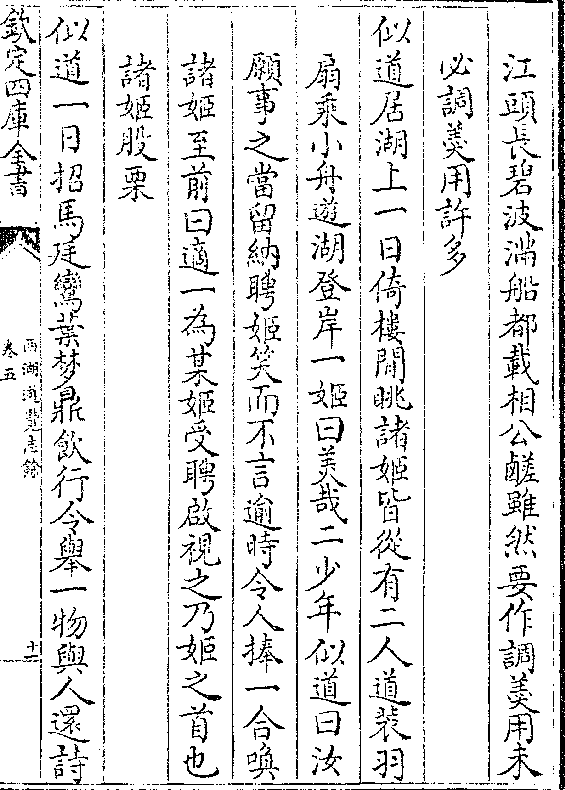 江頭長碧波滿船都載相公鹺雖然要作調羮用未
必調羮用許多
似道居湖上一日倚樓閒眺諸姬皆從有二人道裝羽
扇乘小舟遊湖登岸一姬曰美哉二少年似道曰汝
願事之當留納聘姬笑而不言逾時令人捧一合喚
諸姬至前曰適一為某姬受聘啟視之乃姬之首也
諸姬股栗
似道一日招馬廷鸞葉梦鼎飲行令舉一物與人還詩
欽定四庫全書
西湖遊覽志餘
卷五
十一